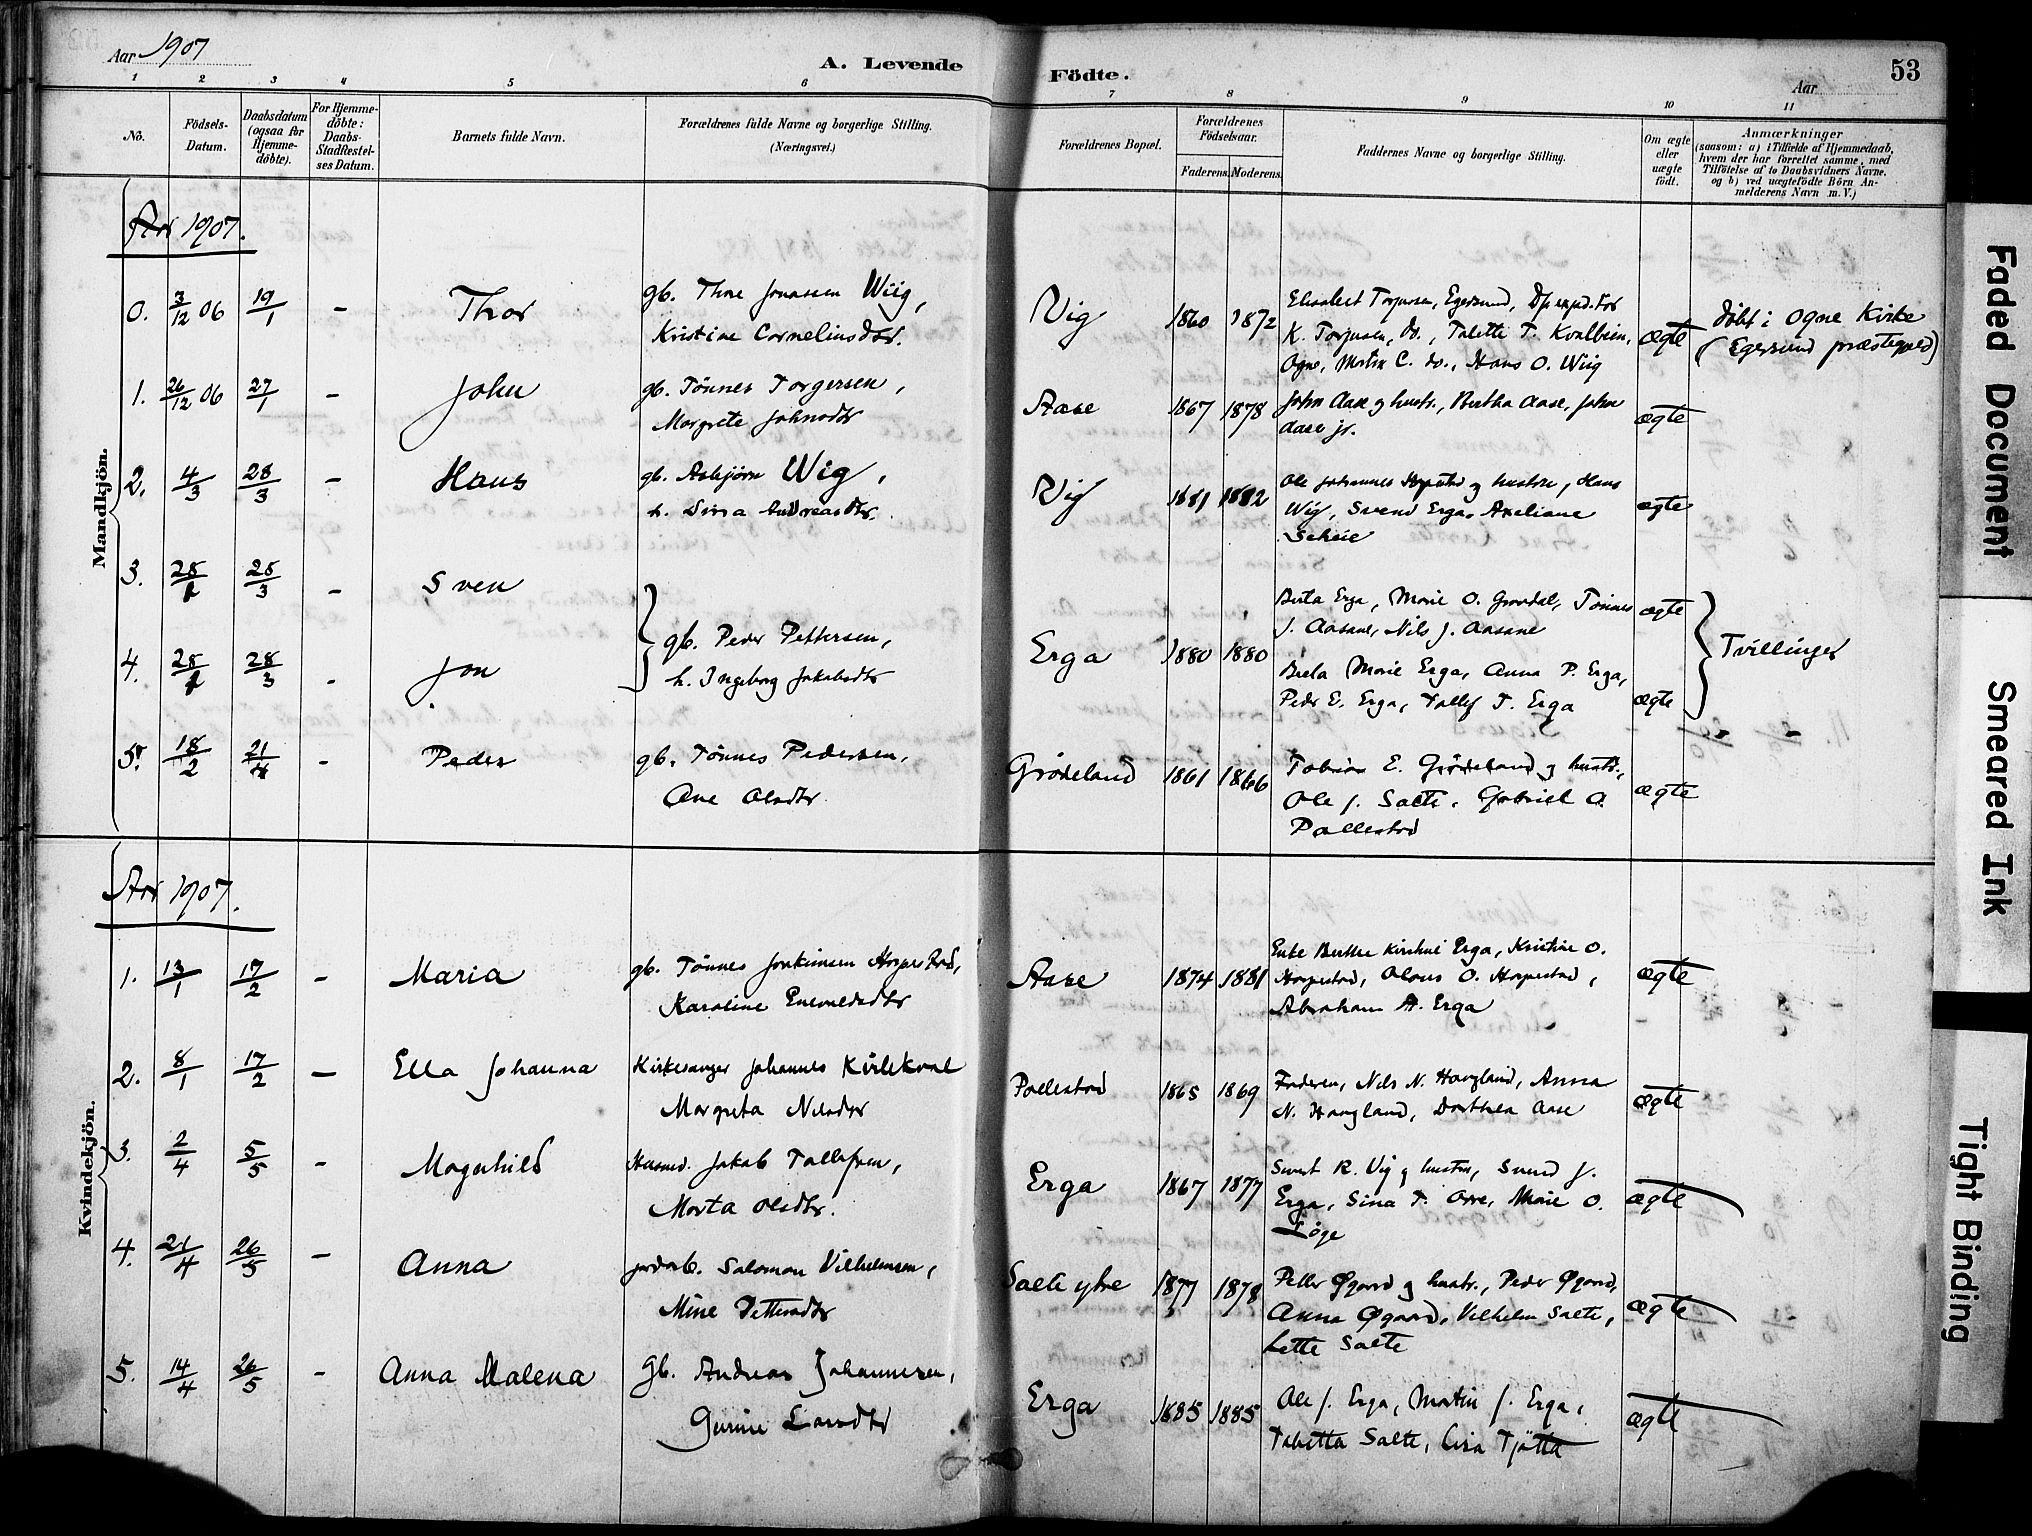 Aar 1907
A. Levende Födte.
Aar
53
1 2 3 4 5 6 7 8 9 10 11
No.
Födsels-
Datum.
Daabsdatum
(ogsaa for
Hjemme-
döbte).
For Hjemme-
döbte:
Daabs-
Stadfestel-
ses Datum.
Barnets fulde Navn.
Forældrenes fulde Navne og borgerlige Stilling.
(Næringsvei.)
Forældrenes Bopæl.
Forældrenes
Födselsaar.
Faderens. Moderens.
Faddernes Navne og borgerlige Stilling.
Om ægte
eller
uægte
födt.
Anmærkninger
(saasom: a) i Tilfælde af Hjemmedaab,
hvem der har forrettet samme, med
Tilföielse af to Daabsvidners Navne.
og b) ved uægtefödte Börn An-
melderens Navn m. V.)
Mandkjön.
Aar 1907.
0. 3/12 06 19/1 - Thor
gb. Thore Jonassen Wiig,
Kristine Corneliusdtr.
Vig 1860 1872
Elisabert Torjusen, Egersund,
K. Torjusen, do., Talette T. Kvalbein,
Ogne, Martin C. do., Hans O. Wiig
ægte
døbt i Ogne Kirke
(Egersund præstegjeld)
1. 26/12 06 27/1 - John
gb. Tönnes Torgersen,
Margrete Johnsdtr
Aase 1867 1878
John Aase og hustr., Bertha Aase, John
Aase jr.
ægte
2. 4/3 28/3 - Hans
gb. Asbjörn Wiig,
h. Sina Andreasdtr.
Vig 1881 1882
Ole Johannes Harpestad og hustru, Hans
Wig, Svend Erga, Axeliane
Scheie
ægte
3. 28/1 28/3 - Sven
4. 28/1 28/3 - Jon
gb. Peder Pettersen,
h. Ingeborg Jakobsdtr
Erga 1880 1880
Berta Erga, Marie O. Grøndal, Tönnes
J. Aasane, Nils J. Aasane
ægte
Berta Marie Erga, Anna P. Erga,
Peder E. Erga, Tollef T. Erga
ægte
Tvillinger
5. 18/2 21/4 - Peder
gb. Tönnes Pedersen,
Ane Olsdtr.
Grödeland 1861 1866
Tobias E. Grödeland og hustr.,
Ole J. Salte, Gabriel O.
Pollestad
ægte
Kvindekjön.
Aar 1907.
1. 13/1 17/2 - Maria
gb. Tönnes Joakimsen Harpestad,
Karoline Enevaldsdtr
Aase 1874 1881
Enke Berthe Kirstine Erga, Kristine O.
Harpestad, Olaus O. Harpestad,
Abraham A. Erga
ægte
2. 8/1 17/2 - Ella Johanna
Kirkesanger Johannes Kvilekval
Margreta Nilsdtr
Pollestad 1865 1869
Faderen, Nils N. Haugland, Anna
N. Haugland, Dorthea Aase
ægte
3. 2/4 5/5 - Magnhild
Husmd. Jakob Tollefsen,
Marta Olsdtr.
Erga 1867 1877
Sivert R. Vig og hustru, Svend J.
Erga, Sina T. Orre, Marie O.
Löge
ægte
4. 21/4 26/5 - Anna
jordarb. Salomon Vilhelmsen,
Mine Pettersdtr
Salte ytre 1877 1878
Petter Øgaard og hustr., Peder Øgaard,
Anna Øgaard, Vilhelm Salte,
Lette Salte
ægte
5. 14/4 26/5 - Anna Malena
Gb. Andreas Johannesen,
Gurine Larsdtr
Erga 1885 1885
Ole J. Erga, Martin J. Erga,
Tabetta Salte, Lisa Tjötta
ægte
Faded Document
Smeared Ink
Tight Binding